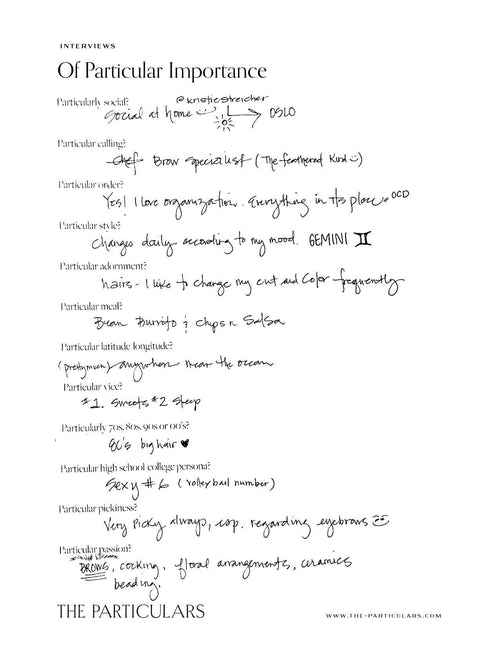 INTERVIEWS
Of Particular Importance
@kristiestreicher
Particularly social?
Social at home → OSLO
Particular calling?
Chef Brow Specialist (The feathered Kind ☺)
Particular order?
Yes! I love organization. Everything in its place. OCD
Particular style?
Changes daily according to my mood. GEMINI ♊
Particular adornment?
hairs - I like to change my cut and color frequently
Particular meal?
Bean Burrito & chips n Salsa
Particular latitude longitude?
(pretty much) anywhere near the ocean
Particular vice?
#1. Sweets #2 Sleep
Particularly 70s, 80s, 90s or 00's?
80's big hair ♥
Particular high school college persona?
Sexy #6 (volleyball number)
Particular pickiness?
Very Picky always, esp. regarding eyebrows
Particular passion?
BROWS, cooking, floral arrangements, ceramics
beading.
THE PARTICULARS
WWW.THE-PARTICULARS.COM